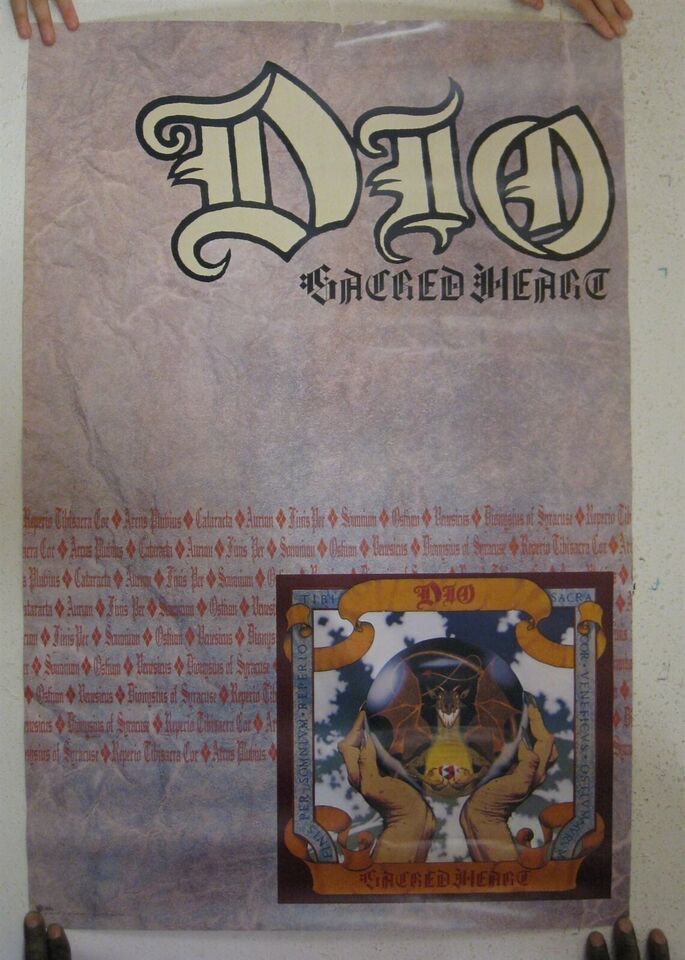 DIO
SACRED HEART
Reperio Tibisacra Cor ♦ Arcus Plubius ♦ Cataracta ♦ Aurian ♦ Finis Per ♦ Somnium ♦ Ostium ♦ Venesicus ♦ Dionysius of Syracuse ♦ Reperio Tib
cra Cor ♦ Arcus Plubius ♦ Cataracta ♦ Aurian ♦ Finis Per ♦ Somnium ♦ Ostium ♦ Venesicus ♦ Dionysius of Syracuse ♦ Reperio Tibisacra Cor ♦ Ar
s Plubius ♦ Cataracta ♦ Aurian ♦ Finis Per ♦ Somnium ♦
ataracta ♦ Aurian ♦ Finis Per ♦ Somnium ♦ Ostium ♦
♦ Finis Per ♦ Somnium ♦ Ostium ♦ Venesicus ♦ Dionys
♦ Somnium ♦ Ostium ♦ Venesicus ♦ Dionysius of Syracuse
♦ Ostium ♦ Venesicus ♦ Dionysius of Syracuse ♦ Reperio Tib
♦ Dionysius of Syracuse ♦ Reperio Tibisacra Cor ♦ A
♦ Reperio Tibisacra Cor ♦ Arcus Plubius ♦
TIBI
DIO
SACRA
FINIS PER · SOMNIVM · REPERIO
COR · VENEFICVS · OSTIVM · AVRVM
SACRED HEART